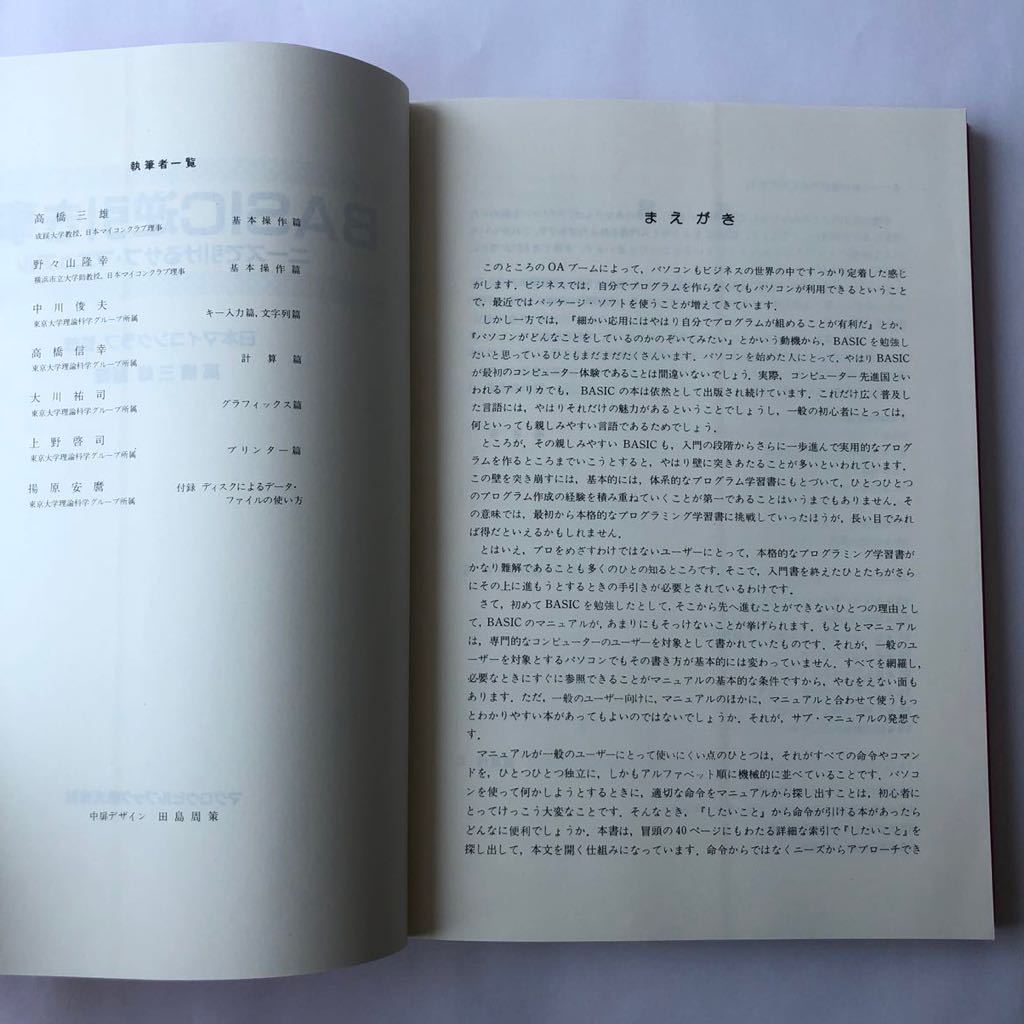 執筆者一覧
高橋三雄 基本操作篇
成蹊大学教授,日本マイコンクラブ理事
野々山隆幸 基本操作篇
横浜市立大学助教授,日本マイコンクラブ理事
中川俊夫 キー入力篇,文字列篇
東京大学理論科学グループ所属
高橋信幸 計算篇
東京大学理論科学グループ所属
大川祐司 グラフィックス篇
東京大学理論科学グループ所属
上野啓司 プリンター篇
東京大学理論科学グループ所属
揚原安麿 付録 ディスクによるデータ・
東京大学理論科学グループ所属 ファイルの使い方
中扉デザイン 田島周策
まえがき
このところのOAブームによって,パソコンもビジネスの世界の中ですっかり定着した感じ
がします.ビジネスでは,自分でプログラムを作らなくてもパソコンが利用できるということ
で,最近ではパッケージ・ソフトを使うことが増えてきています.
しかし一方では,『細かい応用にはやはり自分でプログラムが組めることが有利だ』とか,
『パソコンがどんなことをしているのかのぞいてみたい』とかいう動機から,BASICを勉強し
たいと思っているひともまだまだたくさんいます.パソコンを始めた人にとって,やはりBASIC
が最初のコンピューター体験であることは間違いないでしょう.実際,コンピューター先進国とい
われるアメリカでも,BASICの本は依然として出版され続けています.これだけ広く普及し
た言語には,やはりそれだけの魅力があるということでしょうし,一般の初心者にとっては,
何といっても親しみやすい言語であるためでしょう.
ところが,その親しみやすいBASICも,入門の段階からさらに一歩進んで実用的なプログ
ラムを作るところまでいこうとすると,やはり壁に突きあたることが多いといわれています.
この壁を突き崩すには,基本的には,体系的なプログラム学習書にもとづいて,ひとつひとつ
のプログラム作成の経験を積み重ねていくことが第一であることはいうまでもありません.そ
の意味では,最初から本格的なプログラミング学習書に挑戦していったほうが,長い目でみれ
ば得だといえるかもしれません.
とはいえ,プロをめざすわけではないユーザーにとって,本格的なプログラミング学習書が
かなり難解であることも多くのひとの知るところです.そこで,入門書を終えたひとたちがさら
にその上に進もうとするときの手引きが必要とされているわけです.
さて,初めてBASICを勉強したとして,そこから先へ進むことができないひとつの理由とし
て,BASICのマニュアルが,あまりにもそっけないことが挙げられます.もともとマニュアル
は,専門的なコンピューターのユーザーを対象として書かれていたものです.それが,一般のユ
ーザーを対象とするパソコンでもその書き方が基本的には変わっていません.すべてを網羅し,
必要なときにすぐに参照できることがマニュアルの基本的な条件ですから,やむをえない面も
あります.ただ,一般のユーザー向けに,マニュアルのほかに,マニュアルと合わせて使うもっ
とわかりやすい本があってもよいのではないでしょうか.それが,サブ・マニュアルの発想で
す.
マニュアルが一般のユーザーにとって使いにくい点のひとつは,それがすべての命令やコマン
ドを,ひとつひとつ独立に,しかもアルファベット順に機械的に並べていることです.パソコ
ンを使って何かしようとするときに,適切な命令をマニュアルから探し出すことは,初心者に
とってけっこう大変なことです.そんなとき,『したいこと』から命令が引ける本があったら
どんなに便利でしょうか.本書は,冒頭の40ページにもわたる詳細な索引で『したいこと』を
探し出して,本文を開く仕組みになっています.命令からではなくニーズからアプローチでき